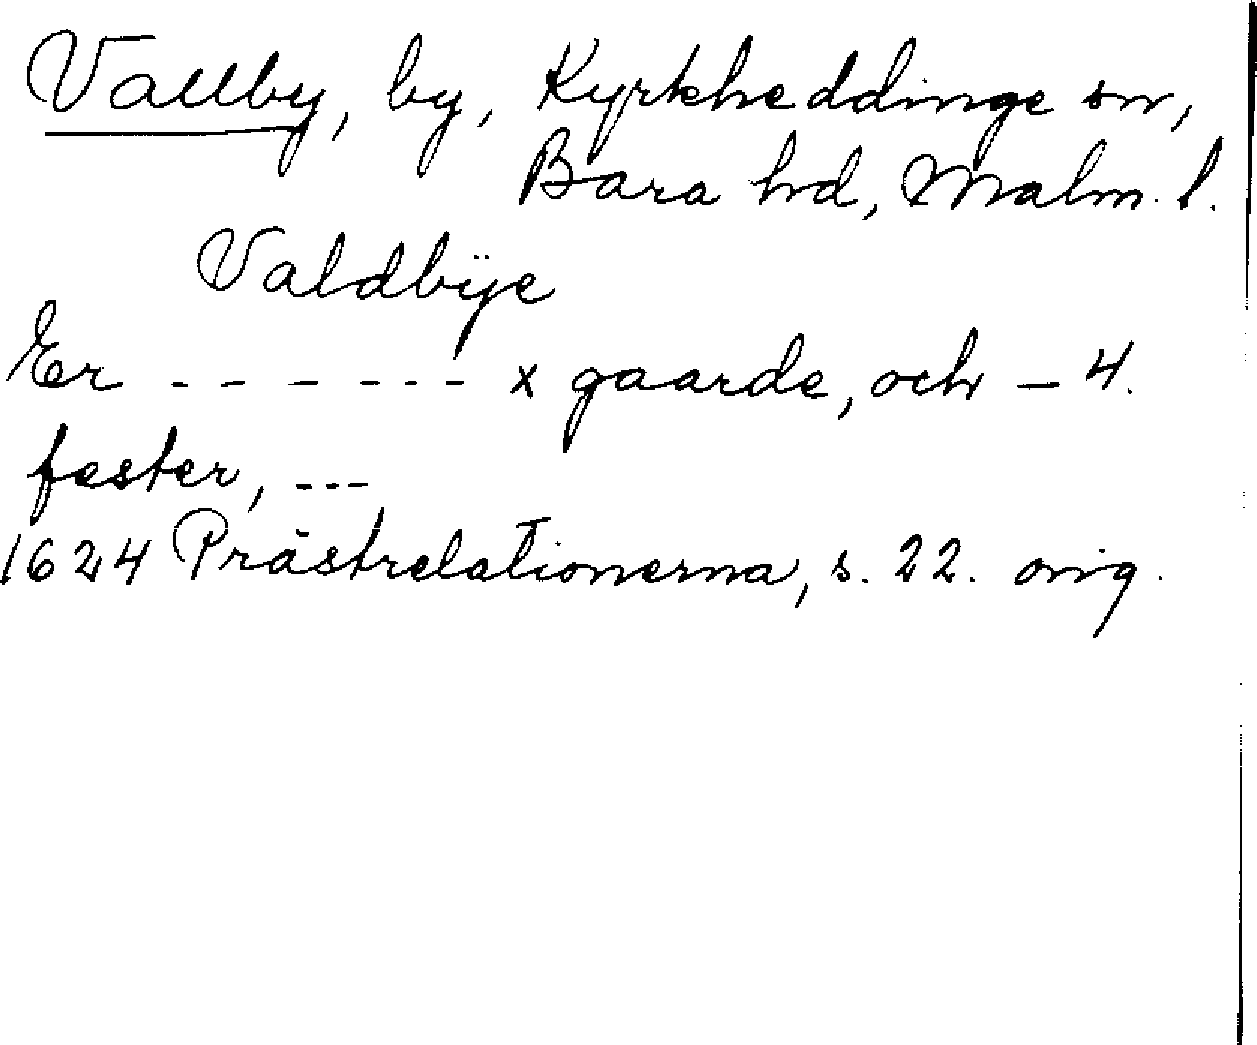 Vallby, by, Kyrkheddinge sn,
Bara hd, Malm. l.
Valdbÿe
Er - - - - - - - x gaarde, och - 4.
fester, ---
1624 Prästrelationerna, s. 22. orig.